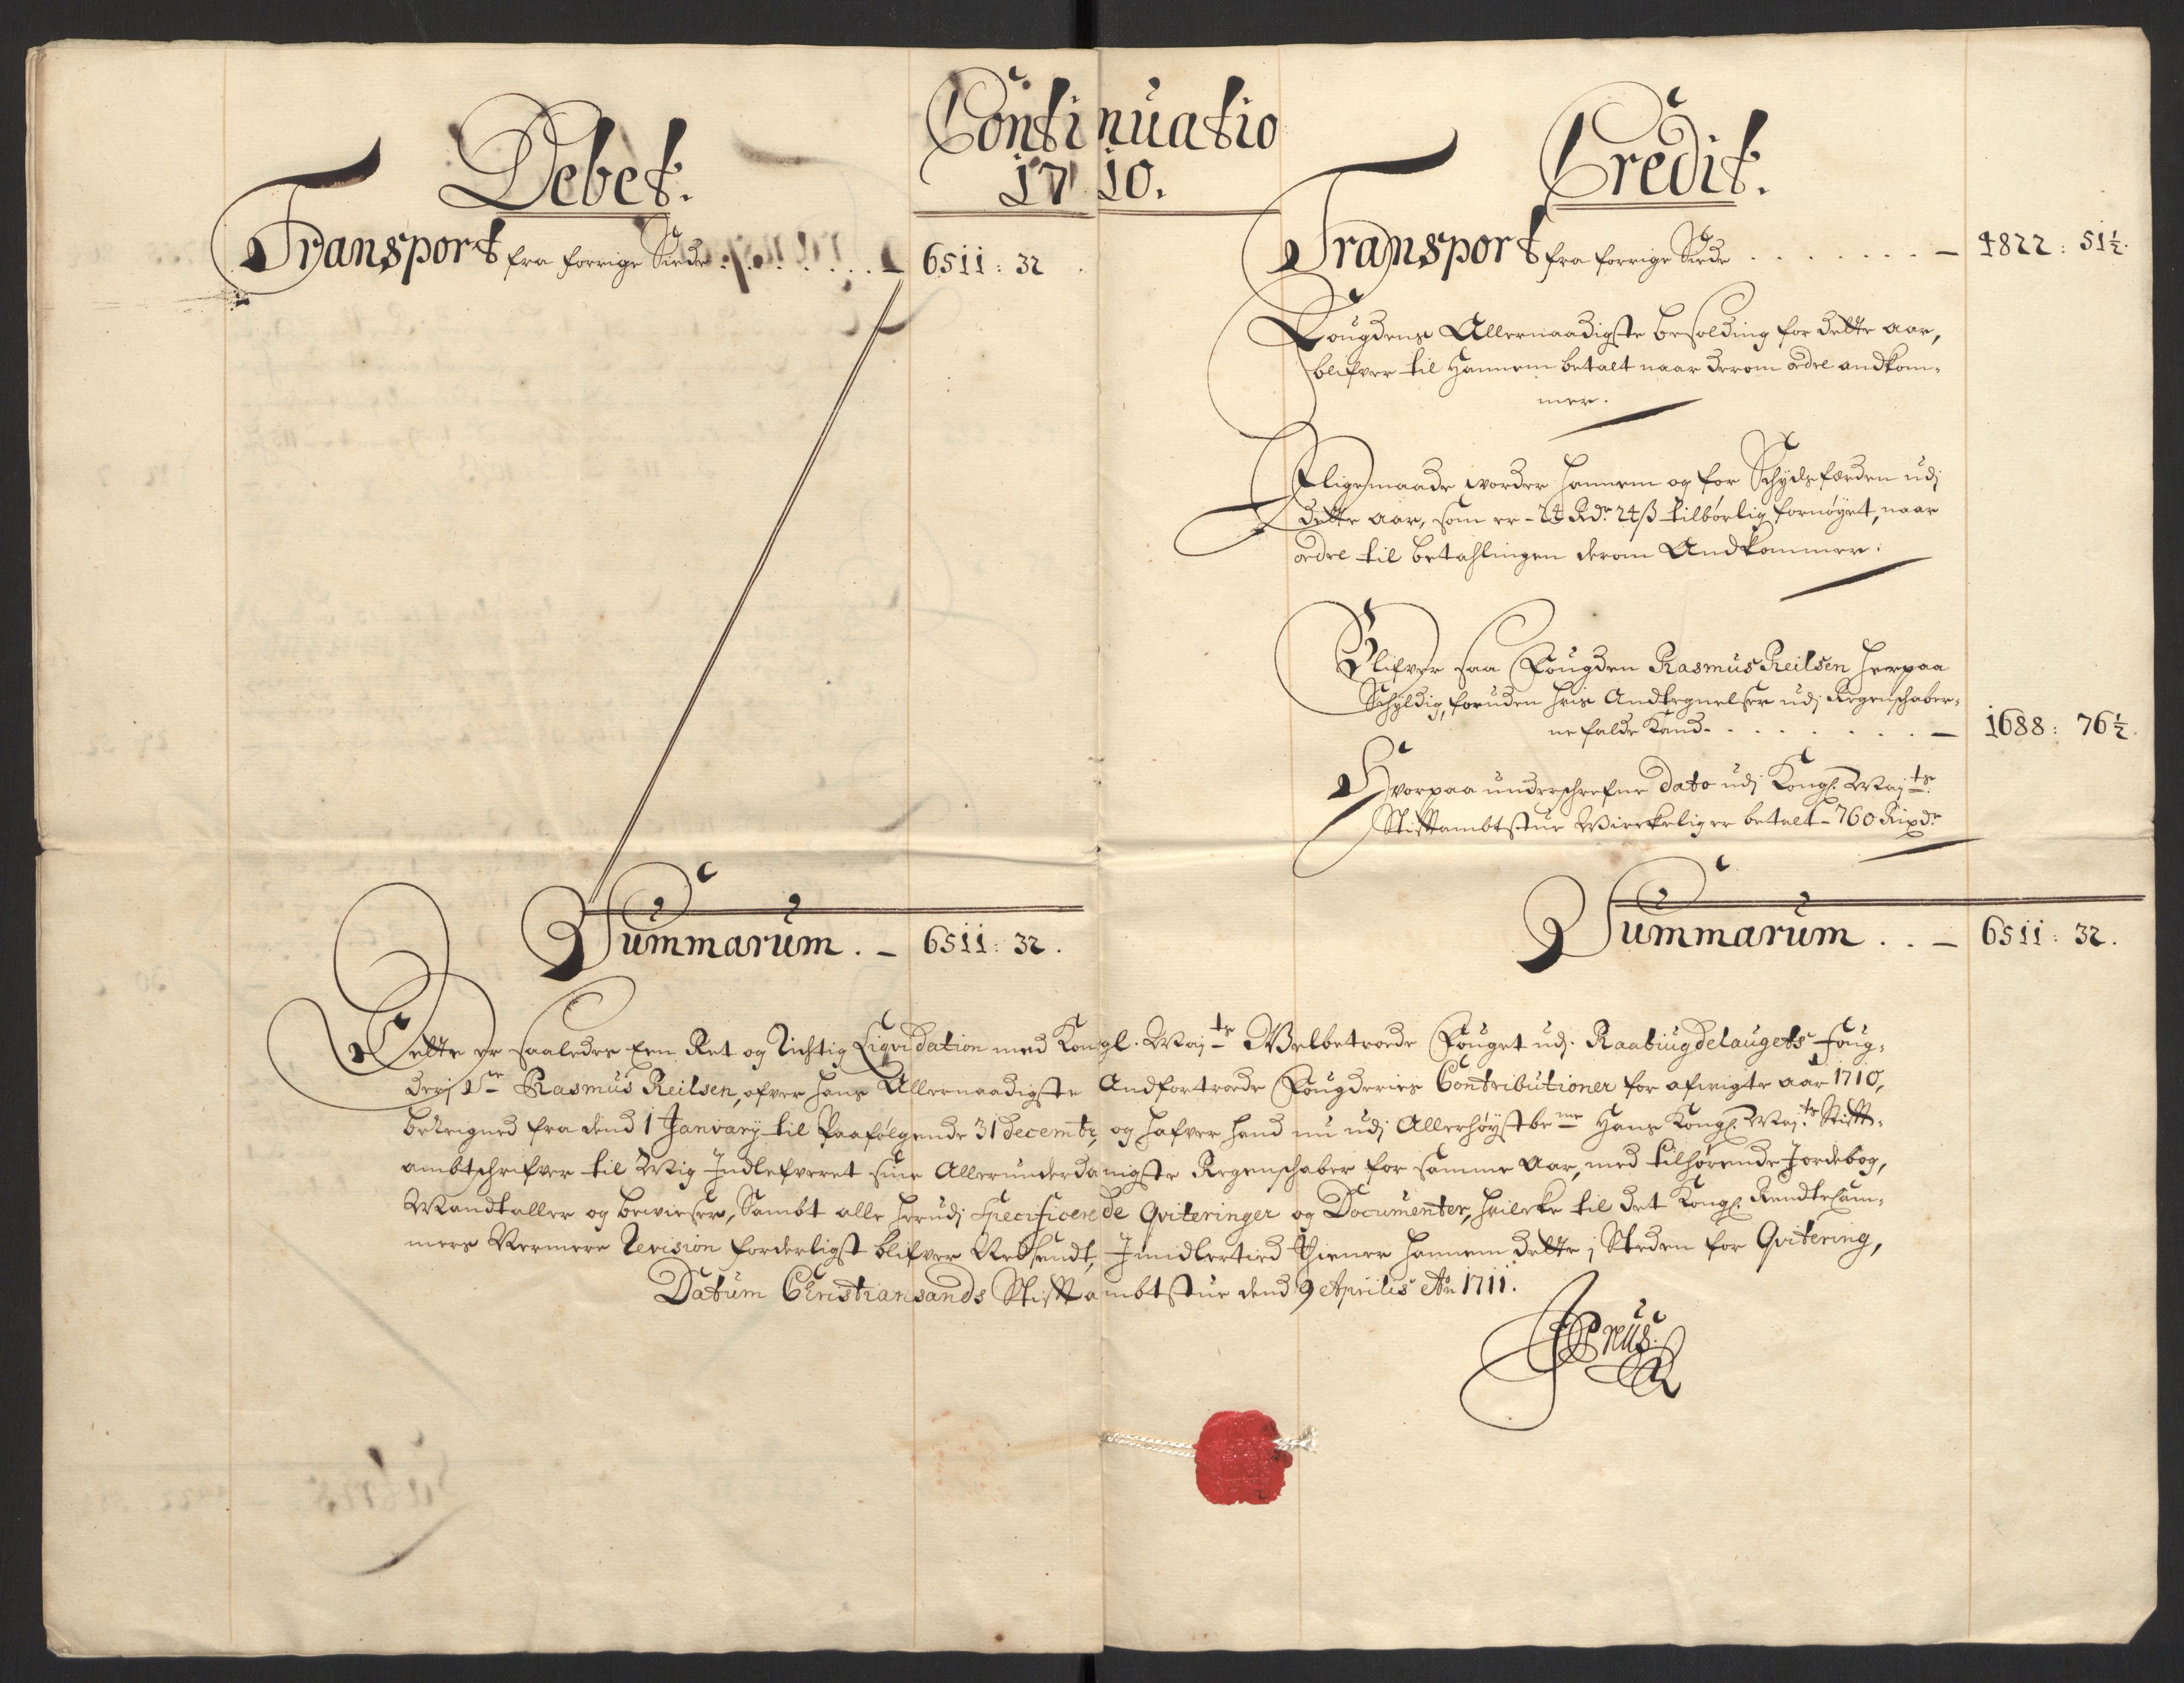 Continuatio
1710.
Debet.
Transport fra forrige Siide . . . . . . . — 6511 : 32
Summarum . — 6511 : 32 .
Credit.
Transport fra forrige Siide . . . . . . . — 4822 : 51½.
Fougdens Allernaadigste besolding for dette aar,
blifver til Hannem betalt naar derom ordre andkom-
mer.
I ligemaade vorder hannem og for Schydsferden udj
dette aar, som er - 24 Rdr. 24 ß tilbørlig fornøyet, naar
ordre til betahlingen derom Andkommer.
Blifver saa Fougden Rasmus Reilsen herpaa
Schyldig, foruden hvis Andtegnelser udj Regenschaber-
ne falde Kand. . . . . . . . — 1688 : 76½.
Hvorpaa underschrefne dato udj Kongl. Maj.ts
Stiftambtstue Wirckelig er betalt - 760 Rixdr.
Summarum . . — 6511 : 32 .
Dette er saaledes Een Ret og Richtig Liqvidation med Kongl. Maj.ts Welbetroede Fouget udj. Raabiugdelaugets Foug-
derj Sr. Rasmus Reilsen, ofver hans Allernaadigste Andfortroede Fougderies Contributioner for afvigte aar 1710,
beregned fra dend 1 Januarij til Paafølgende 31 decembr, og hafver hand nu udj Allerhøystbe.me Hans Kongl. Maj.ts Stift-
ambtschrifver til Mig Indlefveret sine Allerunderdanigste Regenschaber for samme Aar, med tilhørende Jordebog,
Mandtaller og bevieser, Sambt alle herudj Specificerede Qviteringer og Documenter, hvilcke til det Kongl. Rendtekam-
mers Nermere Revision forderligst blifver Nedsendt, Imidlertid tiener hannem dette j Steden for Qvitering,
Datum Christiansands Stiftambtstue dend 9 Aprilis Ao 1711.